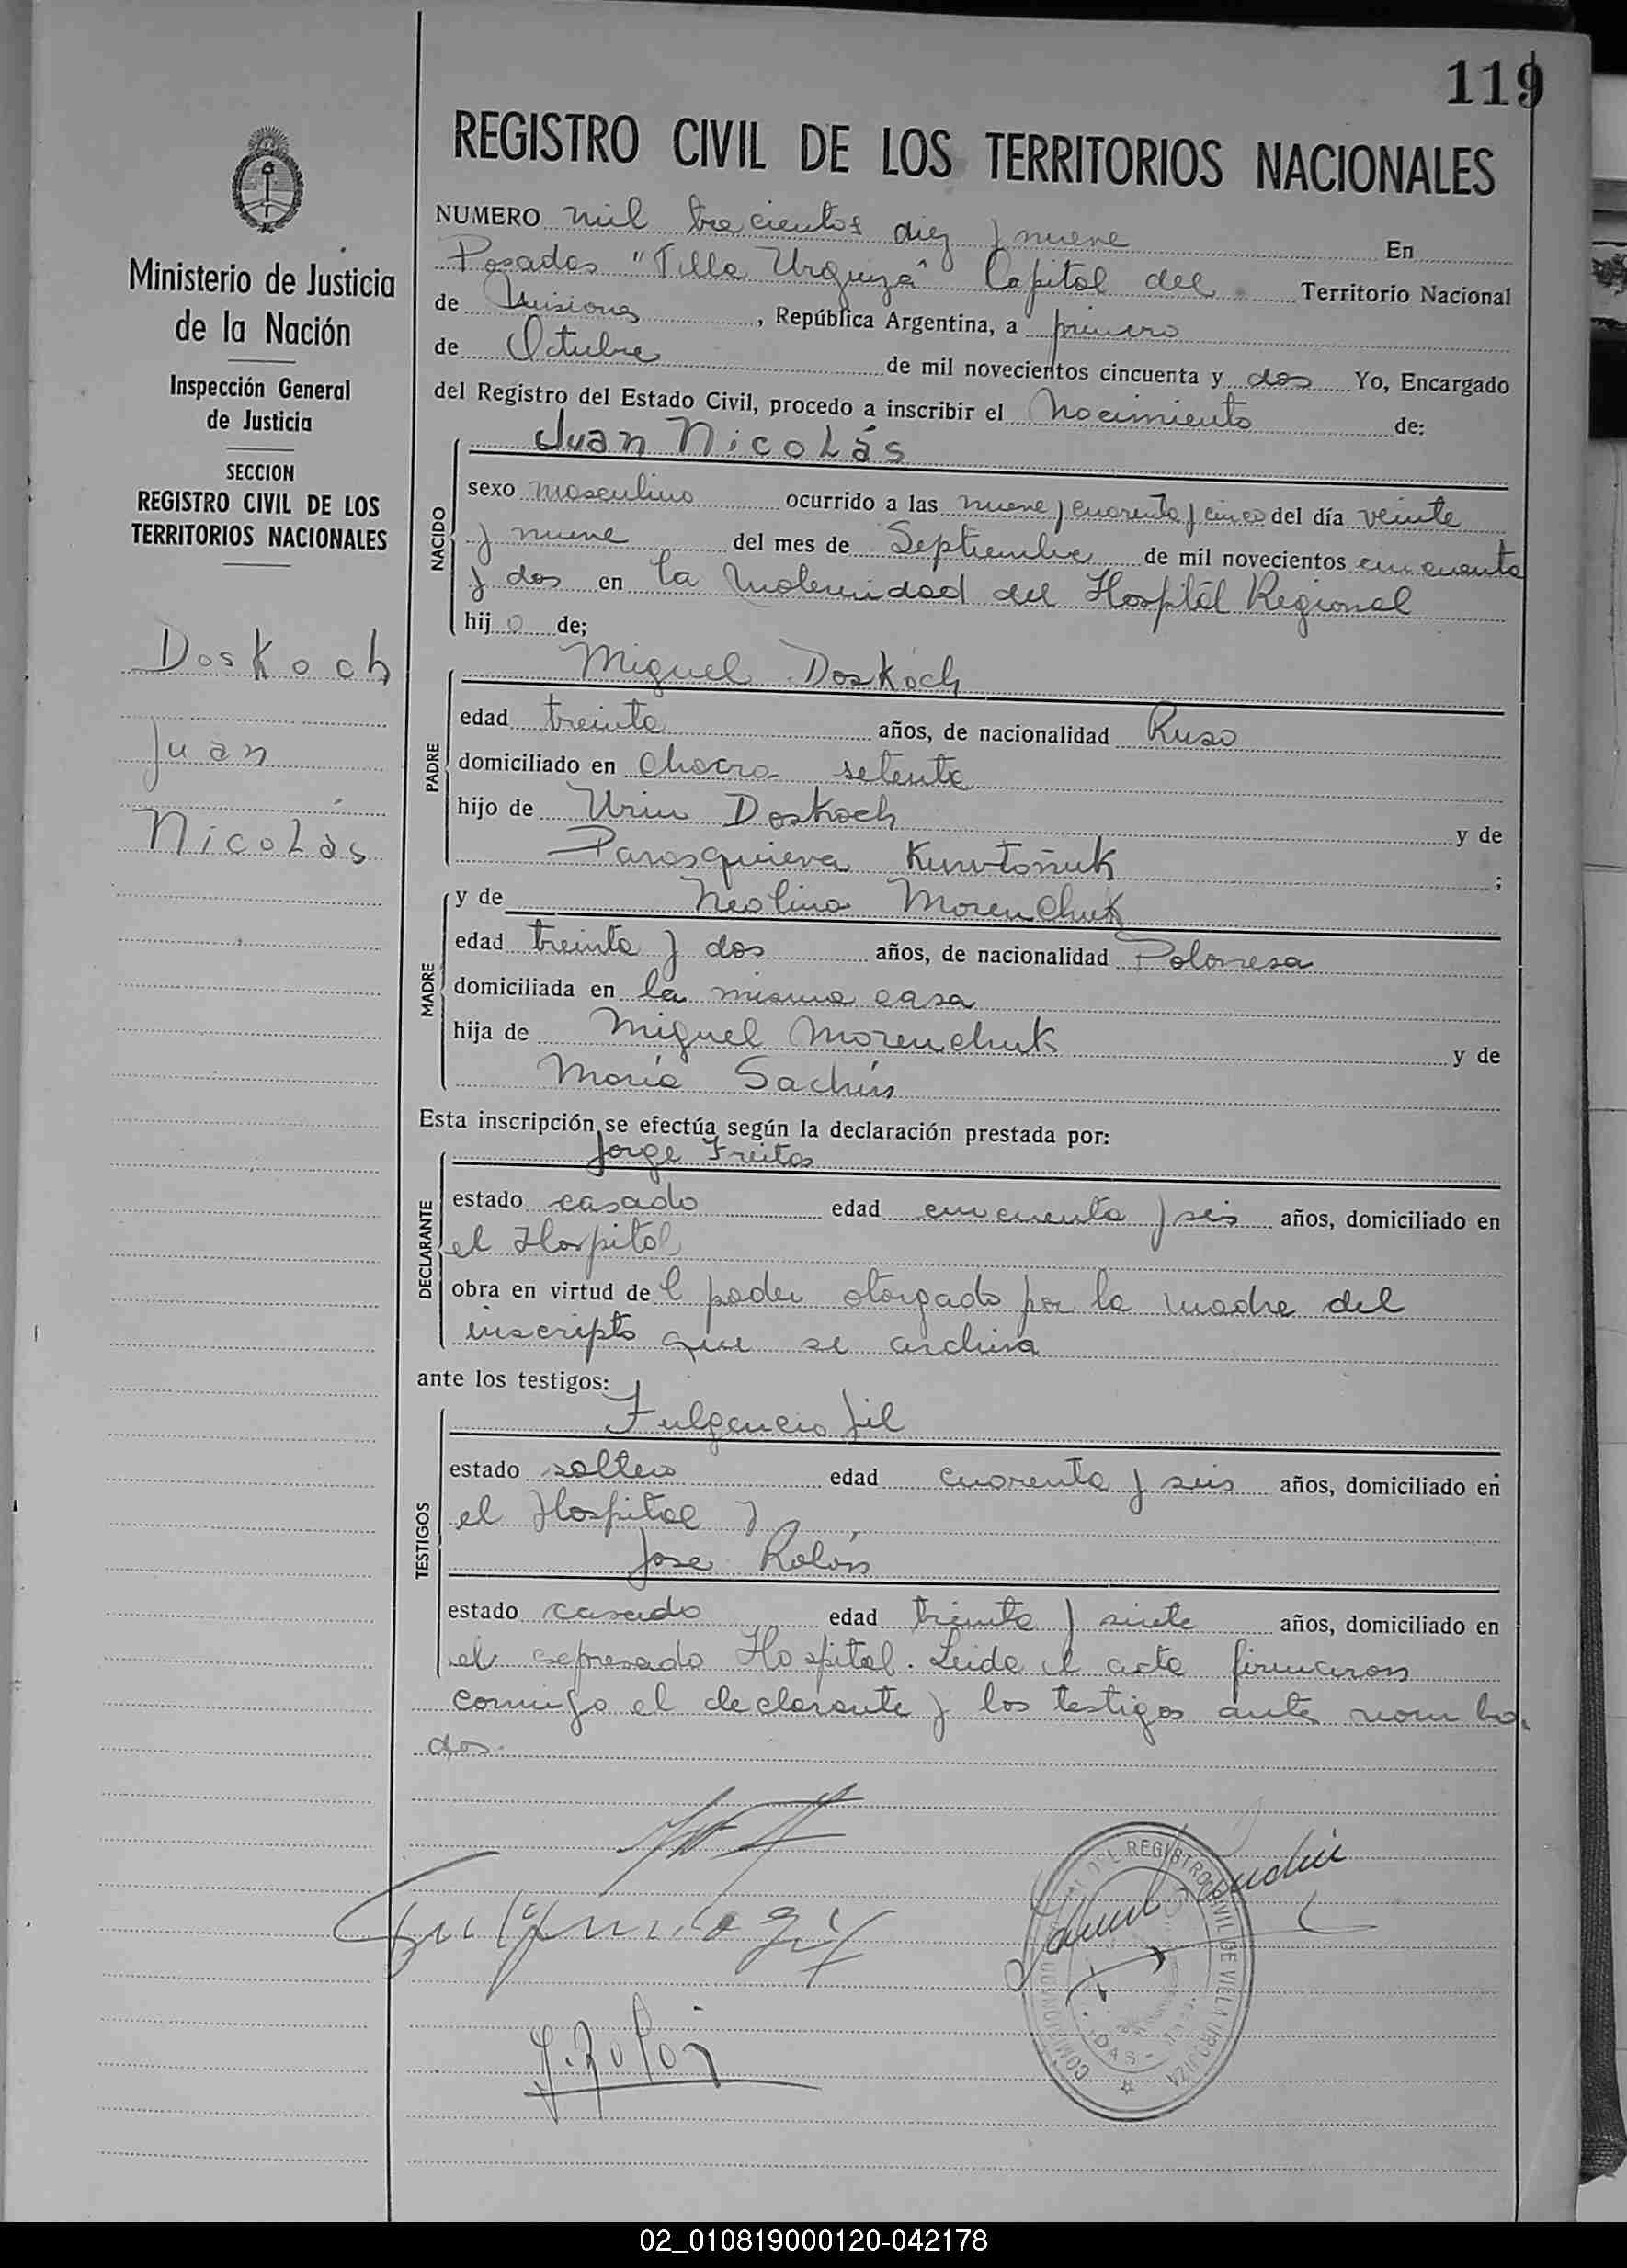 119
REGISTRO CIVIL DE LOS TERRITORIOS NACIONALES
Ministerio de Justicia
de la Nación
Inspección General
de Justicia
SECCION
REGISTRO CIVIL DE LOS
TERRITORIOS NACIONALES
Doskoch
Juan
Nicolás
NUMERO mil trecientos diez y nueve En
Posadas "Villa Urquiza" Capital del Territorio Nacional
de Misiones, República Argentina, a primero
de Octubre de mil novecientos cincuenta y dos Yo, Encargado
del Registro del Estado Civil, procedo a inscribir el Nacimiento de:
Juan Nicolás
NACIDO
sexo masculino ocurrido a las nueve y cuarenta y cinco del día veinte
y nueve del mes de Septiembre de mil novecientos cincuenta
y dos en la Maternidad del Hospital Regional
hijo de;
Miguel Doskoch
PADRE
edad treinta años, de nacionalidad Ruso
domiciliado en Chacra setenta
hijo de Doskoch y de
;
y de Morenchuk
MADRE
edad treinta y dos años, de nacionalidad Polonesa
domiciliada en la misma casa
hija de Miguel Morenchuk y de
María
Esta inscripción se efectúa según la declaración prestada por:
Jorge Freitas
DECLARANTE
estado casado edad cincuenta y seis años, domiciliado en
el Hospital
obra en virtud del poder otorgado por la madre del
inscripto que se archiva
ante los testigos:
Fulgencio Gil
TESTIGOS
estado soltero edad cuarenta y seis años, domiciliado en
el Hospital y
Jose Rolón
estado casado edad treinta y siete años, domiciliado en
el expresado Hospital. Leida el acta firmaron
conmigo el declarante y los testigos antes nombra
dos.
Fulgencio Gil
J. Rolon
REGISTRO CIVIL DE VILLA URQUIZA
02_010819000120-042178